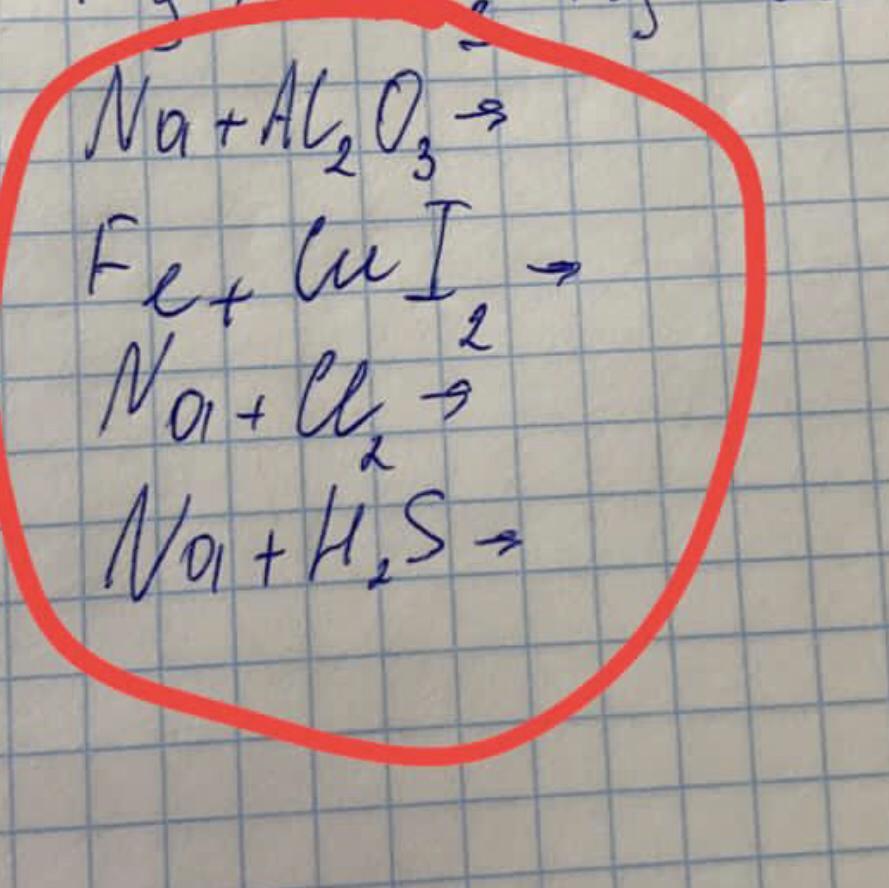 Na + Al₂O₃ →
Fe + CuI₂ →
Na + Cl₂ →
Na + H₂S →